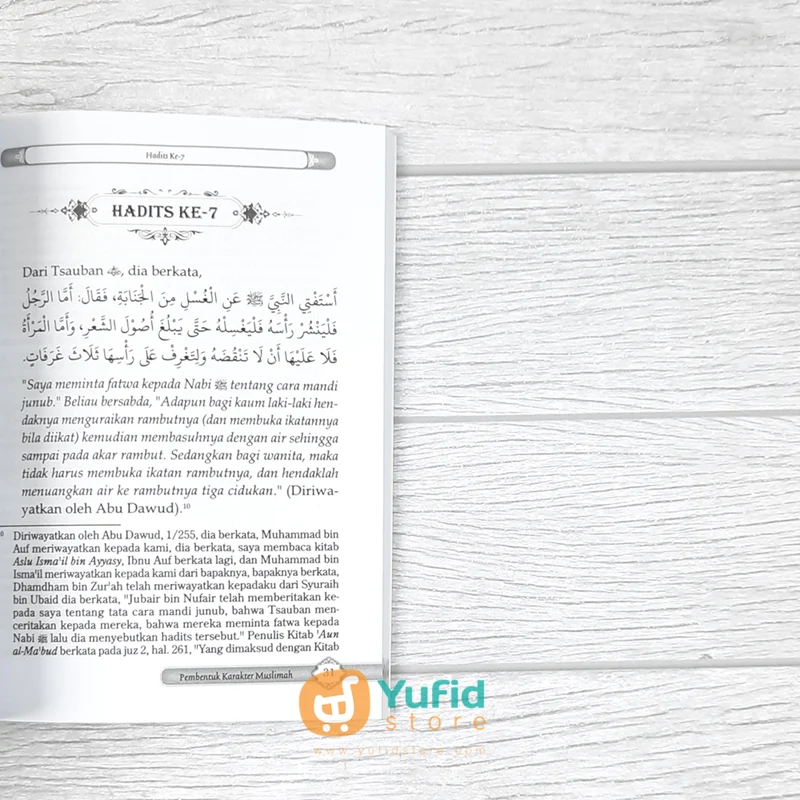 Hadits Ke-7
HADITS KE-7
Dari Tsauban ﵁, dia berkata,
أَسْتَفْتِي النَّبِيَّ ﷺ عَنِ الْغُسْلِ مِنَ الْجَنَابَةِ، فَقَالَ: أَمَّا الرَّجُلُ
فَلْيَنْشُرْ رَأْسَهُ فَلْيَغْسِلْهُ حَتَّى يَبْلُغَ أُصُوْلَ الشَّعْرِ، وَأَمَّا الْمَرْأَةُ
فَلَا عَلَيْهَا أَنْ لَا تَنْقُضَهُ وَلِتَغْرِفْ عَلَى رَأْسِهَا ثَلَاثَ غَرَفَاتٍ.
"Saya meminta fatwa kepada Nabi ﷺ tentang cara mandi
junub." Beliau bersabda, "Adapun bagi kaum laki-laki hen-
daknya menguraikan rambutnya (dan membuka ikatannya
bila diikat) kemudian membasuhnya dengan air sehingga
sampai pada akar rambut. Sedangkan bagi wanita, maka
tidak harus membuka ikatan rambutnya, dan hendaklah
menuangkan air ke rambutnya tiga cidukan." (Diriwa-
yatkan oleh Abu Dawud).¹⁰
Diriwayatkan oleh Abu Dawud, 1/255, dia berkata, Muhammad bin
Auf meriwayatkan kepada kami, dia berkata, saya membaca kitab
Aslu Isma'il bin Ayyasy, Ibnu Auf berkata lagi, dan Muhammad bin
Isma'il meriwayatkan kepada kami dari bapaknya, bapaknya berkata,
Dhamdham bin Zur'ah telah meriwayatkan kepadaku dari Syuraih
bin Ubaid dia berkata, "Jubair bin Nufair telah memberitakan ke-
pada saya tentang tata cara mandi junub, bahwa Tsauban men-
ceritakan kepada mereka, bahwa mereka meminta fatwa kepada
Nabi ﷺ lalu dia menyebutkan hadits tersebut." Penulis Kitab 'Aun
al-Ma'bud berkata pada juz 2, hal. 261, "Yang dimaksud dengan Kitab
Pembentuk Karakter Muslimah
31
Yufid
store
www.yufidstore.com